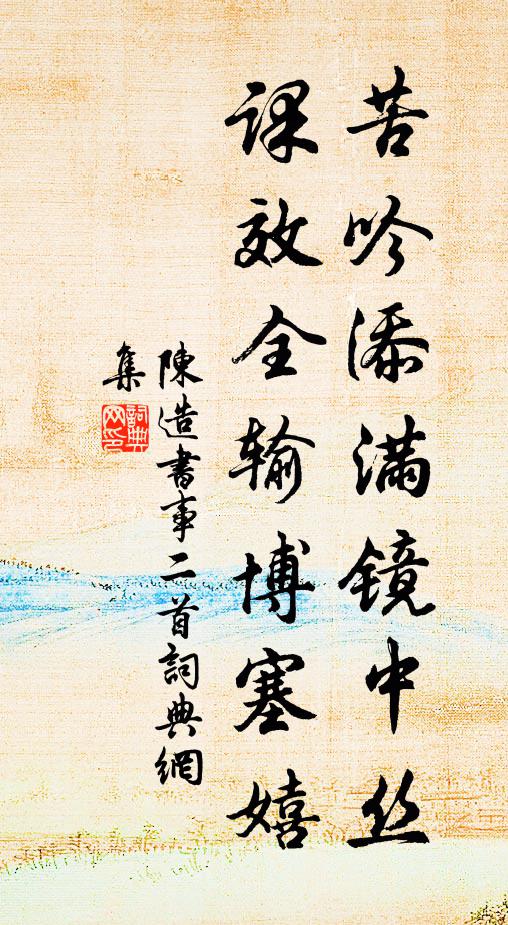 苦吟添满镜中丝
课效全输博塞嬉
陳造書事二首詞典網
集
詞典网印